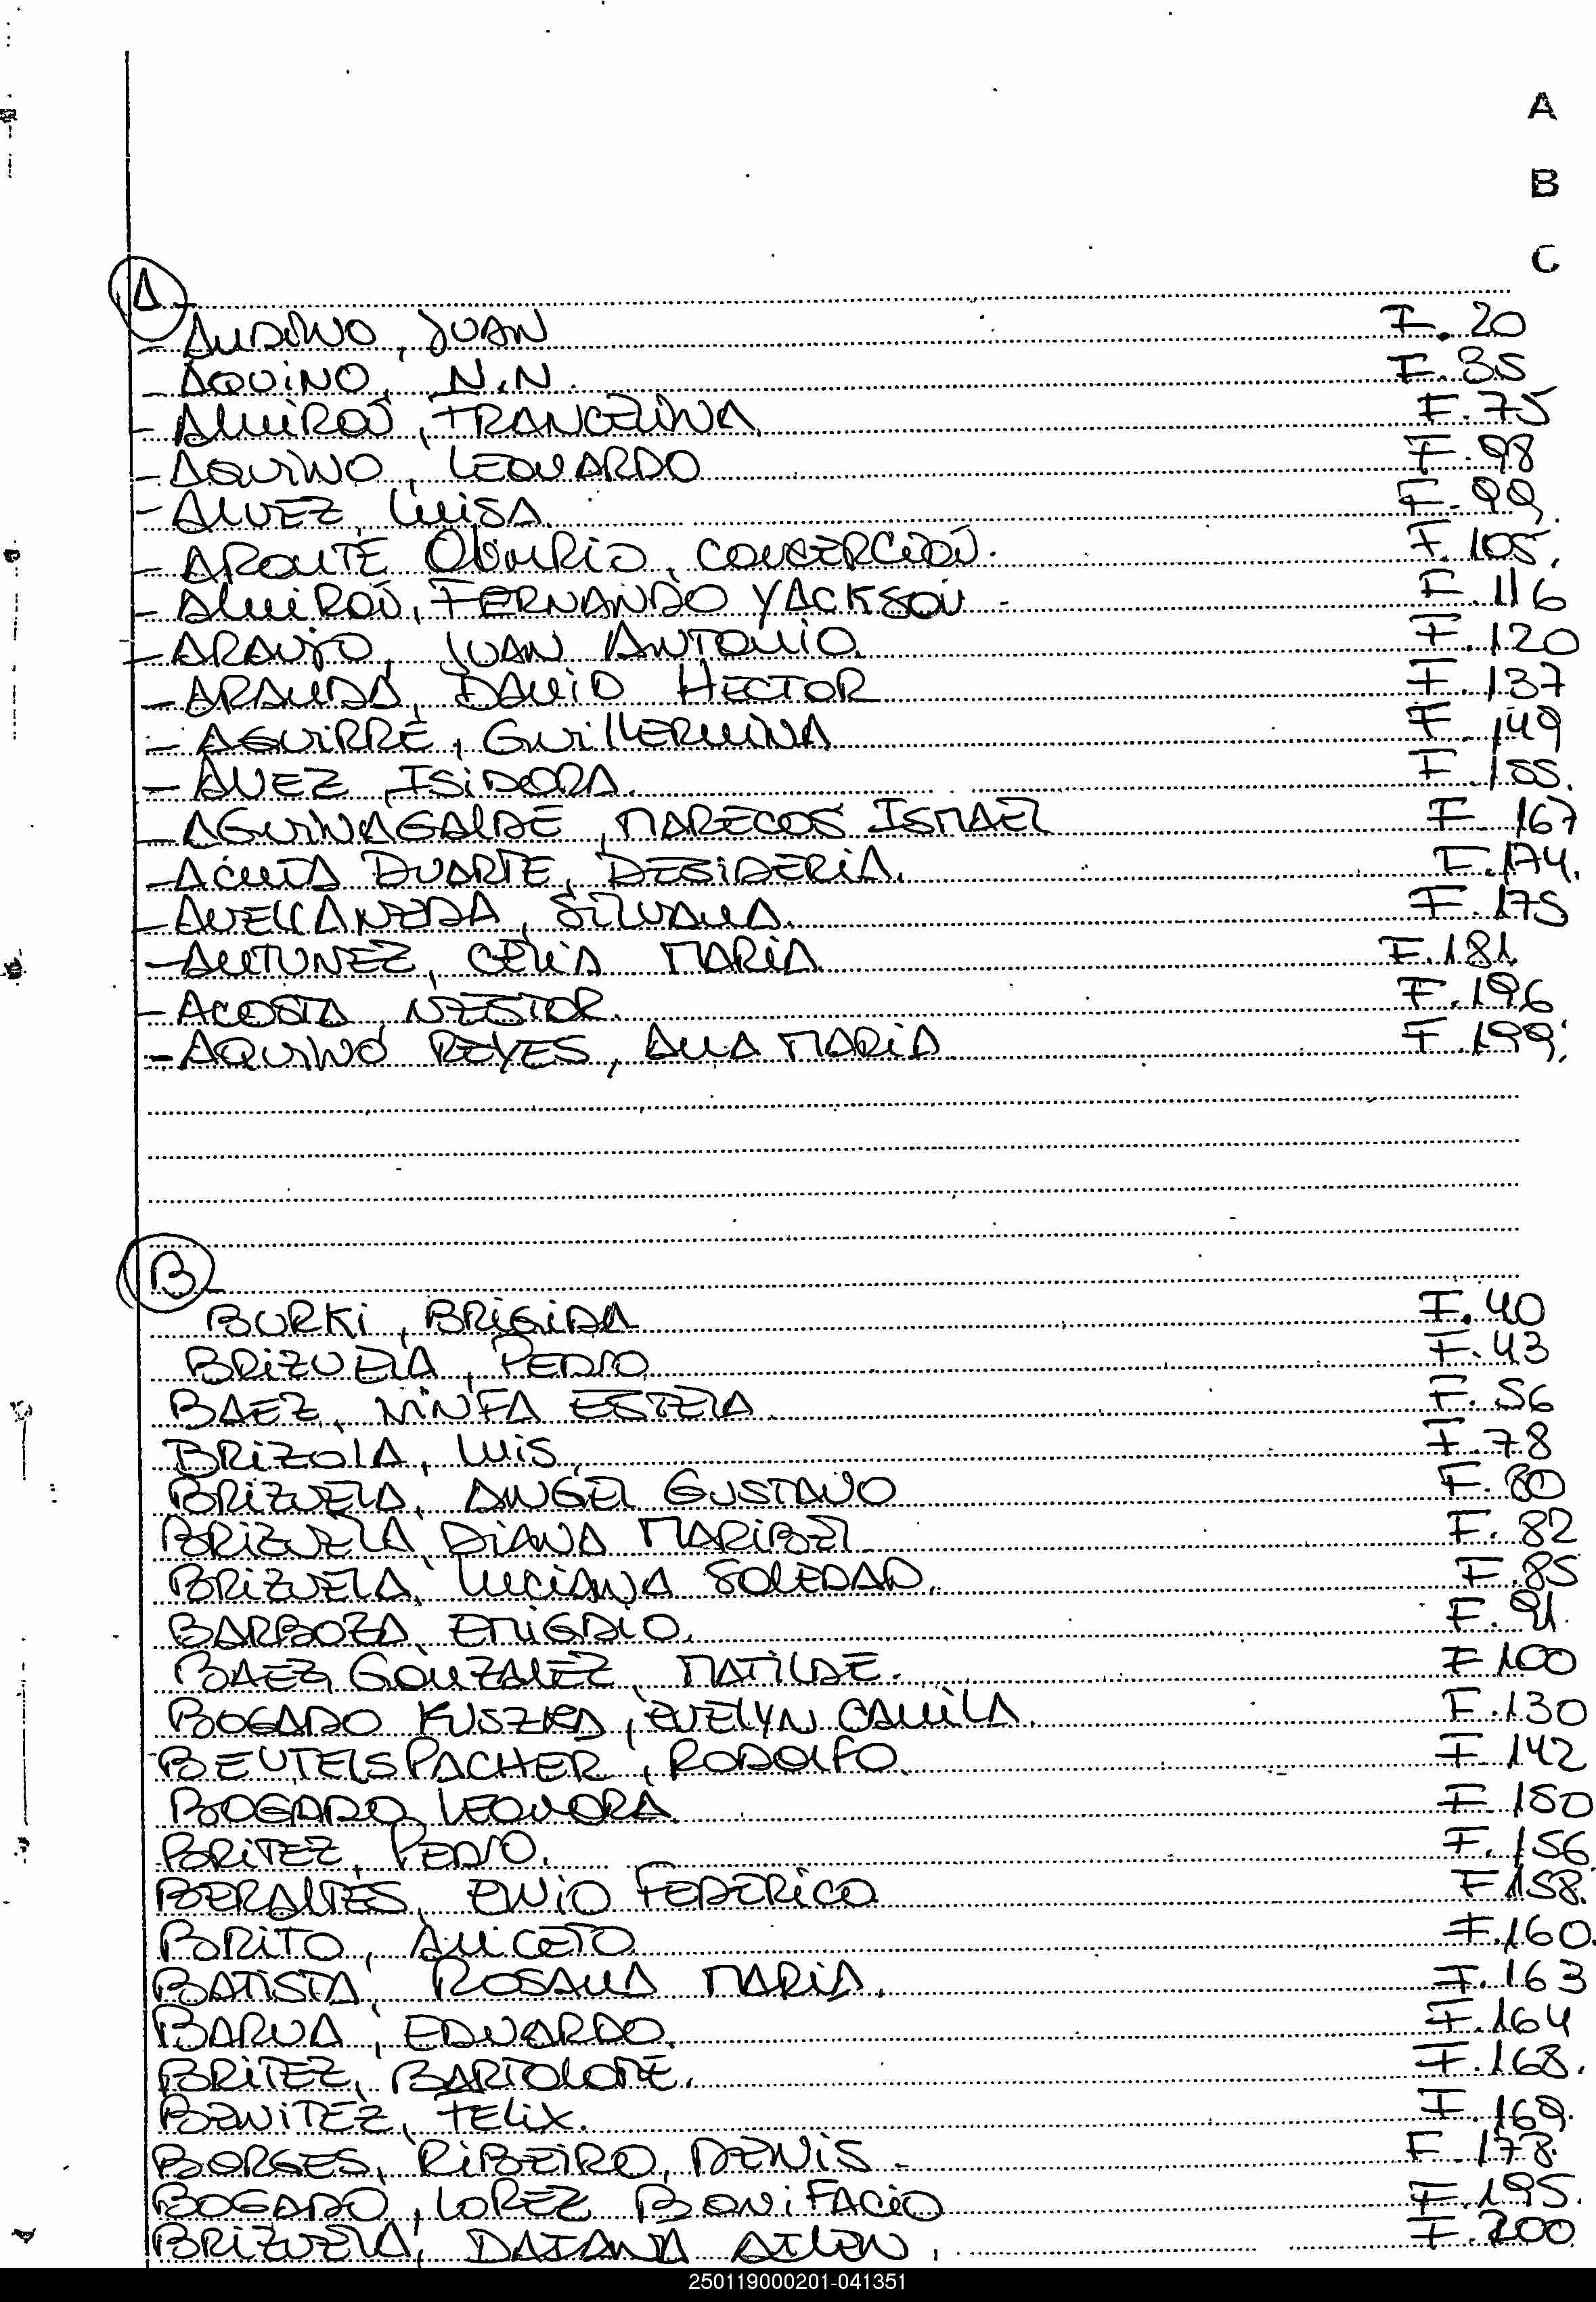 A
B
C
A -
- ANDINO, JUAN F. 20
- AQUINO, N.N. F. 35
- ALMIRON, FRANCELINA F. 75
- AQUINO, LEONARDO F. 98
- ALVEZ, LUISA F. 99.
- ARONTE OLMEDO, CONCEPCION. F. 105.
- ALMIRON, FERNANDO YACKSON - F. 116
- ARAUJO, JUAN ANTONIO. F. 120
- ARANDA, DAVID HECTOR F. 137
- AGUIRRE, GUILLERMINA F. 149
- ALVEZ, ISIDORA. F. 155.
- AGUINAGALDE, MARECOS ISMAEL F. 167
- ACUÑA DUARTE, DESIDERIA. F. 174.
- AVELLANEDA, SILVANA. F. 175
- ANTUNEZ, CELIA MARIA F. 181
- ACOSTA, NESTOR. F. 196
- AQUINO REYES, ANA MARIA F. 199.
B -
BURKI, BRIGIDA F. 40
BRIZUELA, PEDRO F. 43
BAEZ, NINFA ESTELA F. 56
BRIZOLA, LUIS, F. 78
BRIZUELA, ANGEL GUSTAVO F. 80
BRIZUELA, DIANA MARIBEL F. 82
BRIZUELA, LUCIANA SOLEDAD. F. 85
BARBOZA, EMIGDIO. F. 91.
BAEZ GONZALEZ, MATILDE. F 100
BOGADO KUSZKA, EVELYN CAMILA. F. 130
BEUTELSPACHER, RODOLFO. F. 142
BOGADO, LEONORA F. 150
BRITEZ, PEDRO. F. 156
BERALTES, ENIO FEDERICO F 158.
BRITO, ANICETO F. 160.
BATISTA, ROSANA MARIA. F. 163
BARUA, EDUARDO. F. 164
BRITEZ, BARTOLOME. F. 168.
BENITEZ, FELIX. F. 169.
BORGES, RIBEIRO, DENIS - F. 178.
BOGADO, LOPEZ BONIFACIO F. 195.
BRIZUELA, DAIANA AILEN, F. 200
250119000201-041351